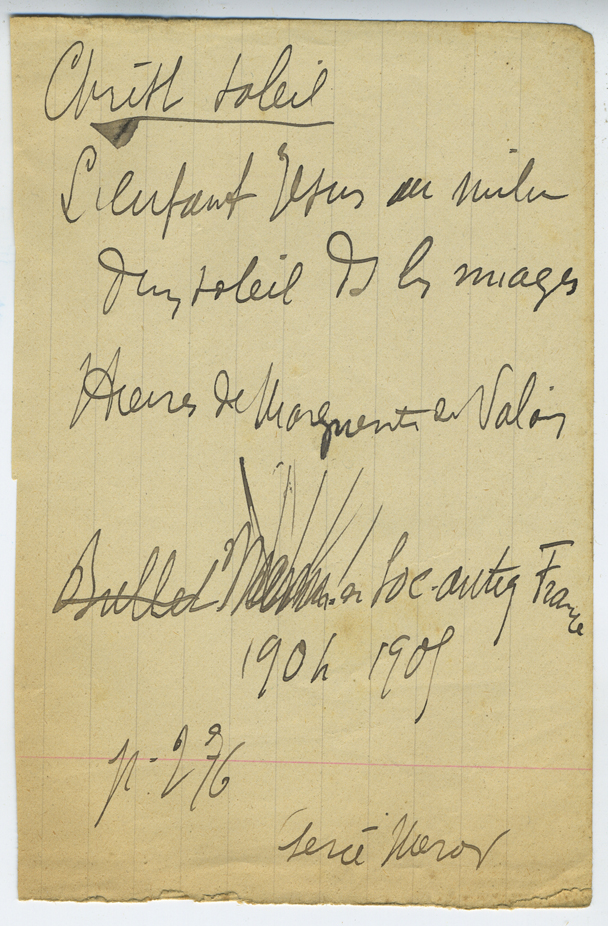 Christ soleil
L'enfant Jésus au milieu
d'un soleil ds les nuages
Heures de Marguerite de Valois
Bullet Mem. de Soc. antiq France
1904 1905
p. 276